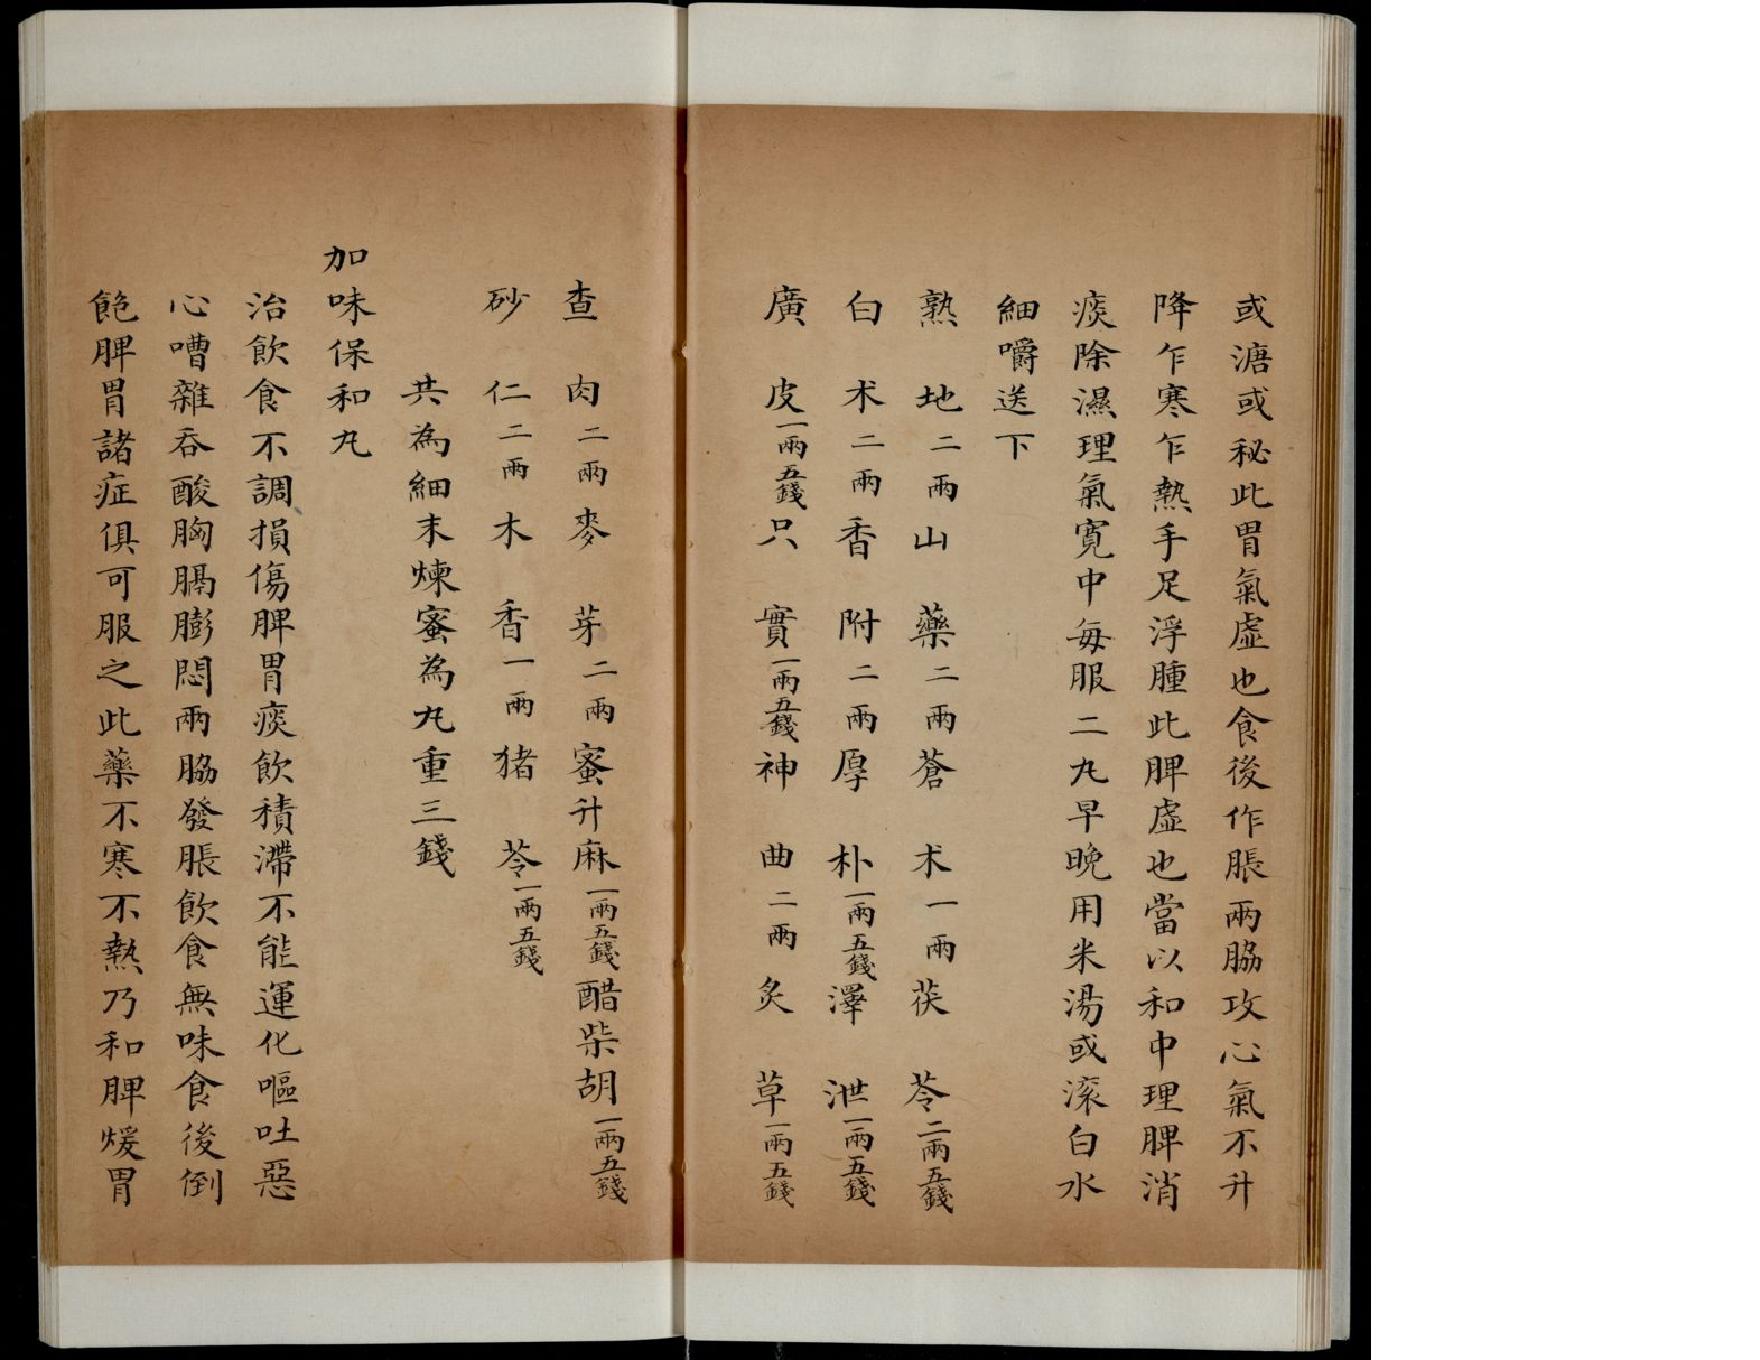 或溏或秘此胃氣虛也食後作脹兩脇攻心氣不升
降乍寒乍熱手足浮腫此脾虛也當以和中理脾消
痰除濕理氣寬中每服二丸早晚用米湯或滾白水
細嚼送下
熟地二兩山藥二兩蒼朮一兩茯苓二兩五錢
白朮二兩香附二兩厚朴一兩五錢澤泄一兩五錢
廣皮一兩五錢只實一兩五錢神曲二兩炙草一兩五錢
查肉二兩麥芽二兩蜜升麻一兩五錢醋柴胡一兩五錢
砂仁二兩木香一兩猪苓一兩五錢
共為細末煉蜜為丸重三錢
加味保和丸
治飲食不調損傷脾胃痰飲積滯不能運化嘔吐惡
心嘈雜吞酸胸膈膨悶兩脇發脹飲食無味食後倒
飽脾胃諸症俱可服之此藥不寒不熱乃和脾煖胃